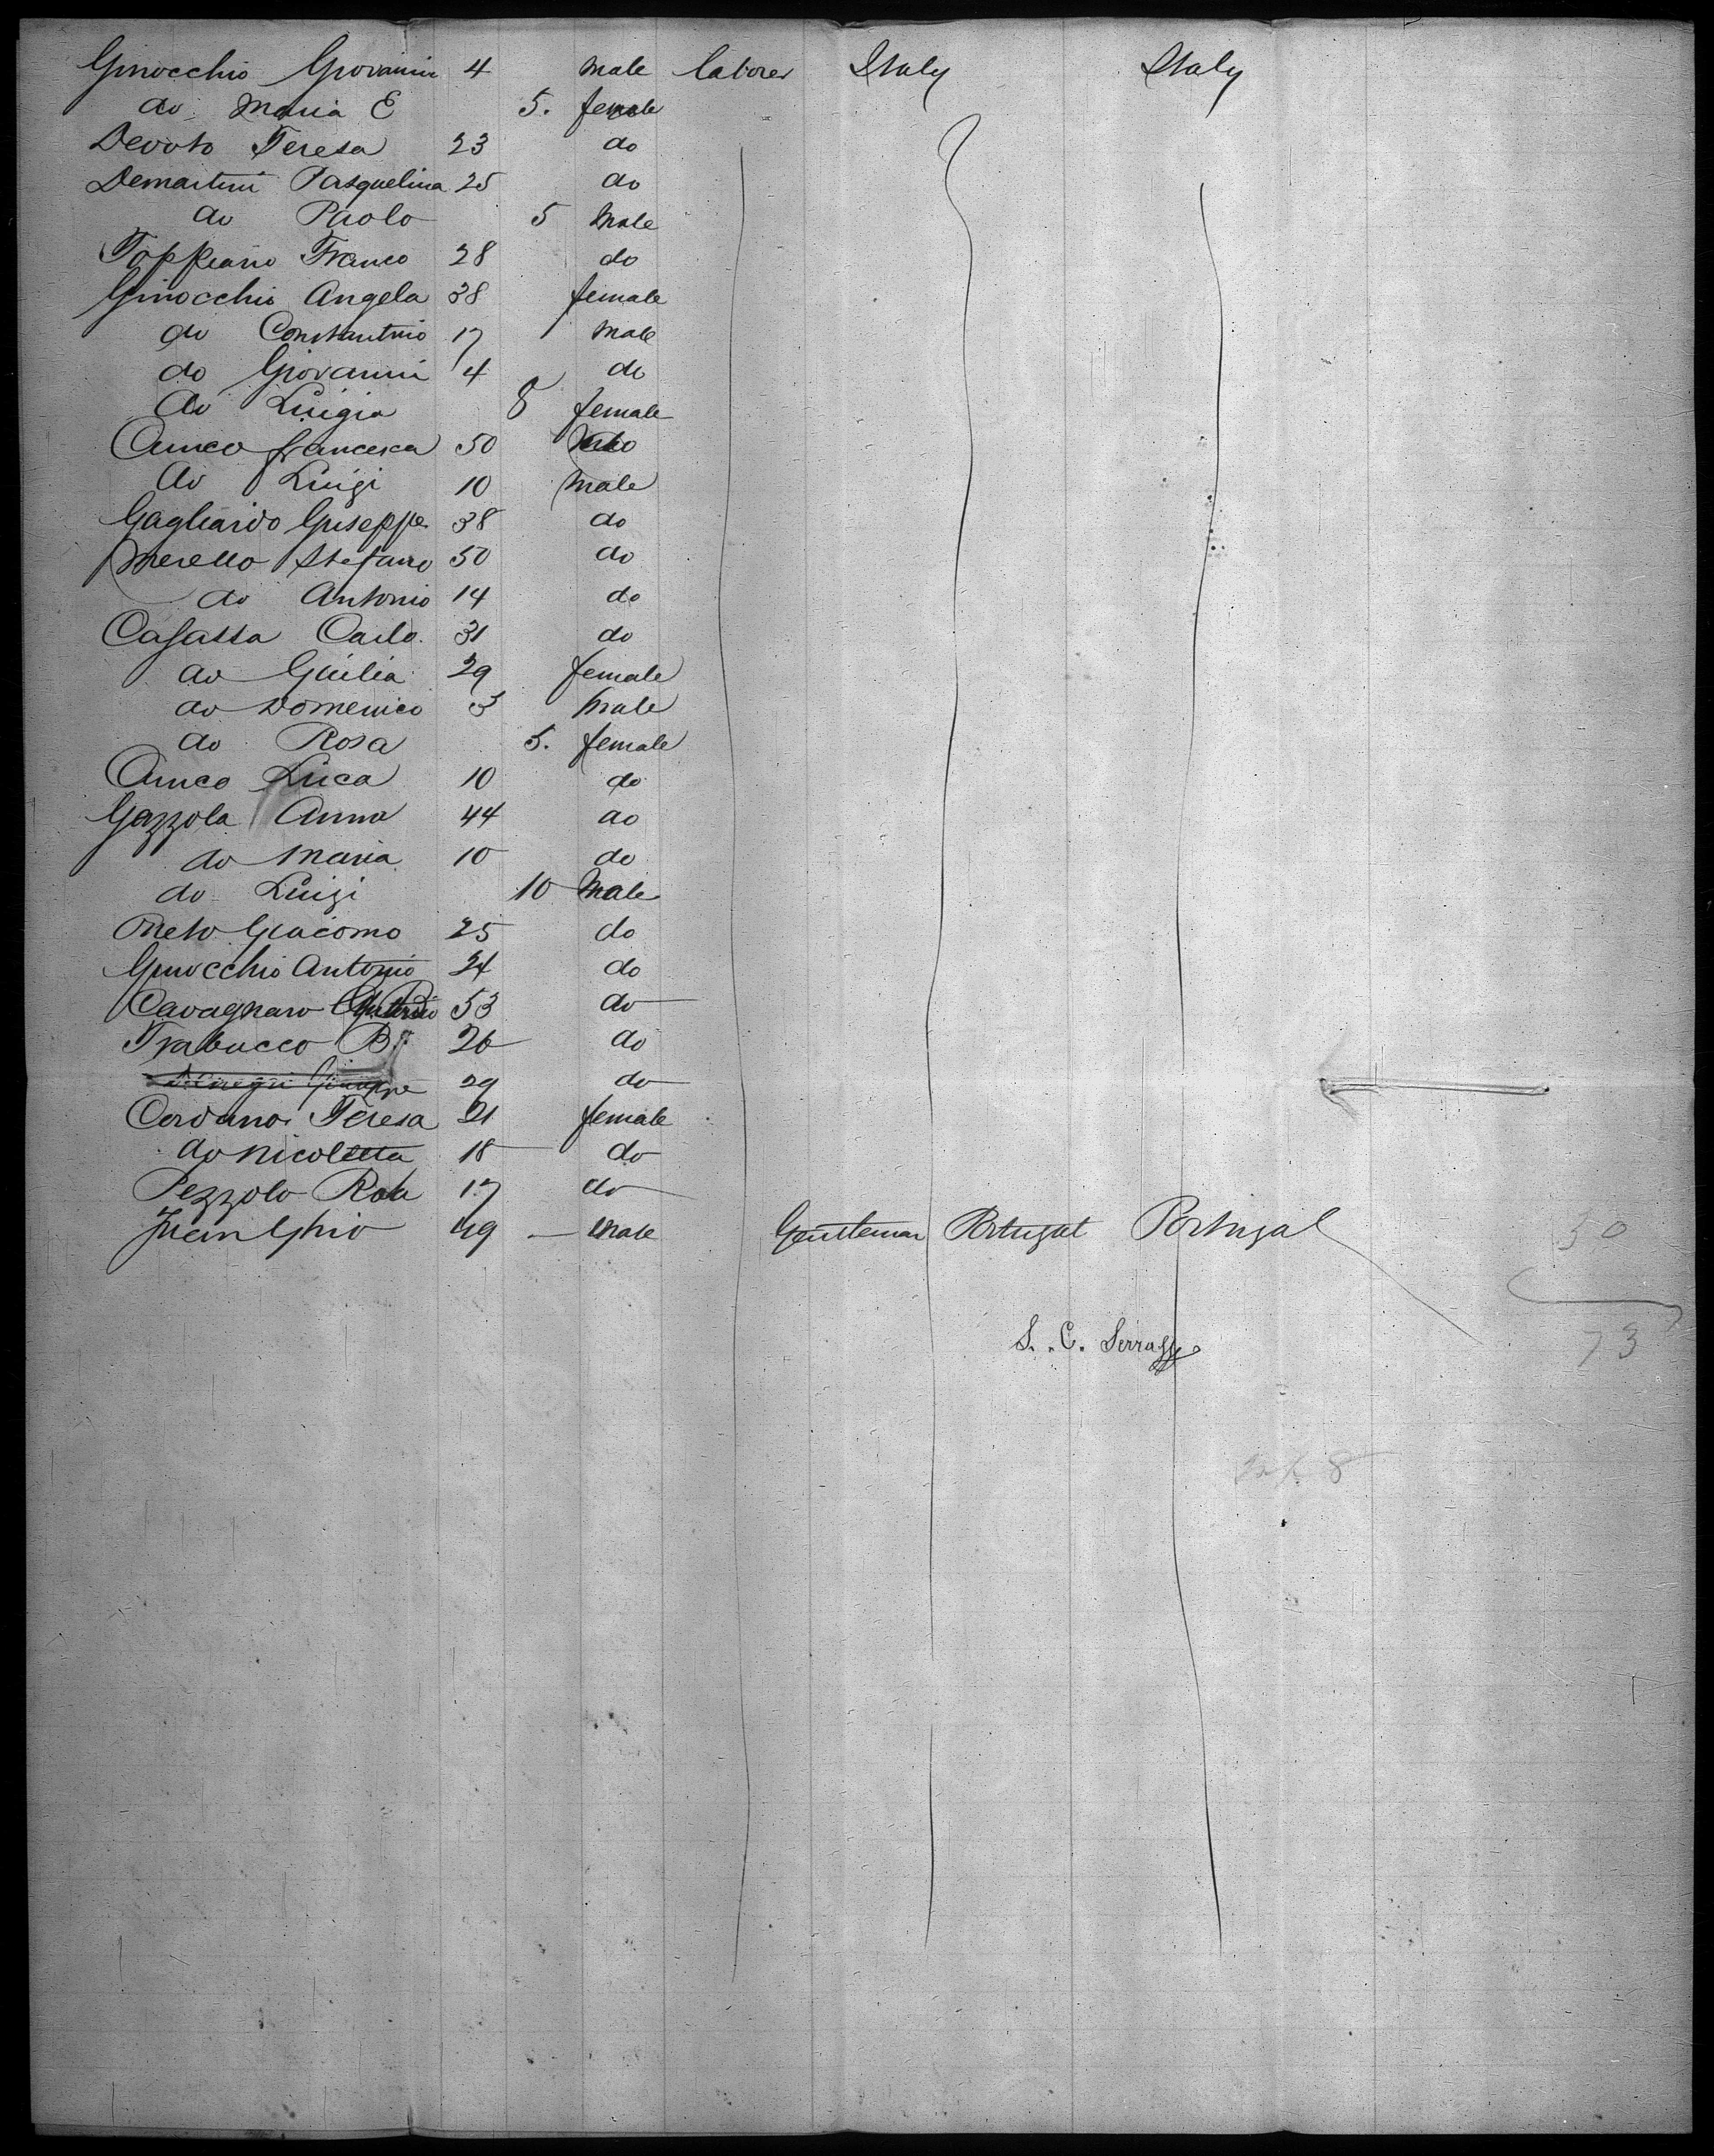 Ginocchio Giovanni 4 male laborer Italy Italy
do Maria E 5. female
Devoto Teresa 23 do
Demartini Pasquelina 25 do
do Paolo 5 male
Toppiano Franco 28 do
Ginocchio Angela 38 female
do Constantino 17 male
do Giovanni 4 do
do Luigia 8 female
Cuneo francesca 50 do
do Luigi 10 male
Gagliardo Giuseppe 38 do
Merello Stefano 50 do
do Antonio 14 do
Casassa Carlo. 31 do
do Guilia 29 female
do Domenico 3 male
do Rosa 5. female
Cuneo Luca 10 do
Gazzola Anna 44 do
do Maria 10 do
do Luigi 10 male
Giacomo 25 do
Ginocchio Antonio 24 do
Cavagnaro 53 do
Trabucco B. 26 do
Giuseppe 29 do
Cordano Teresa 21 female
do Nicoletta 18 do
Pezzolo Rosa 17 do
Juan Ghio 49 — male Gentleman Portugal Portugal
30
S. C.
73
8